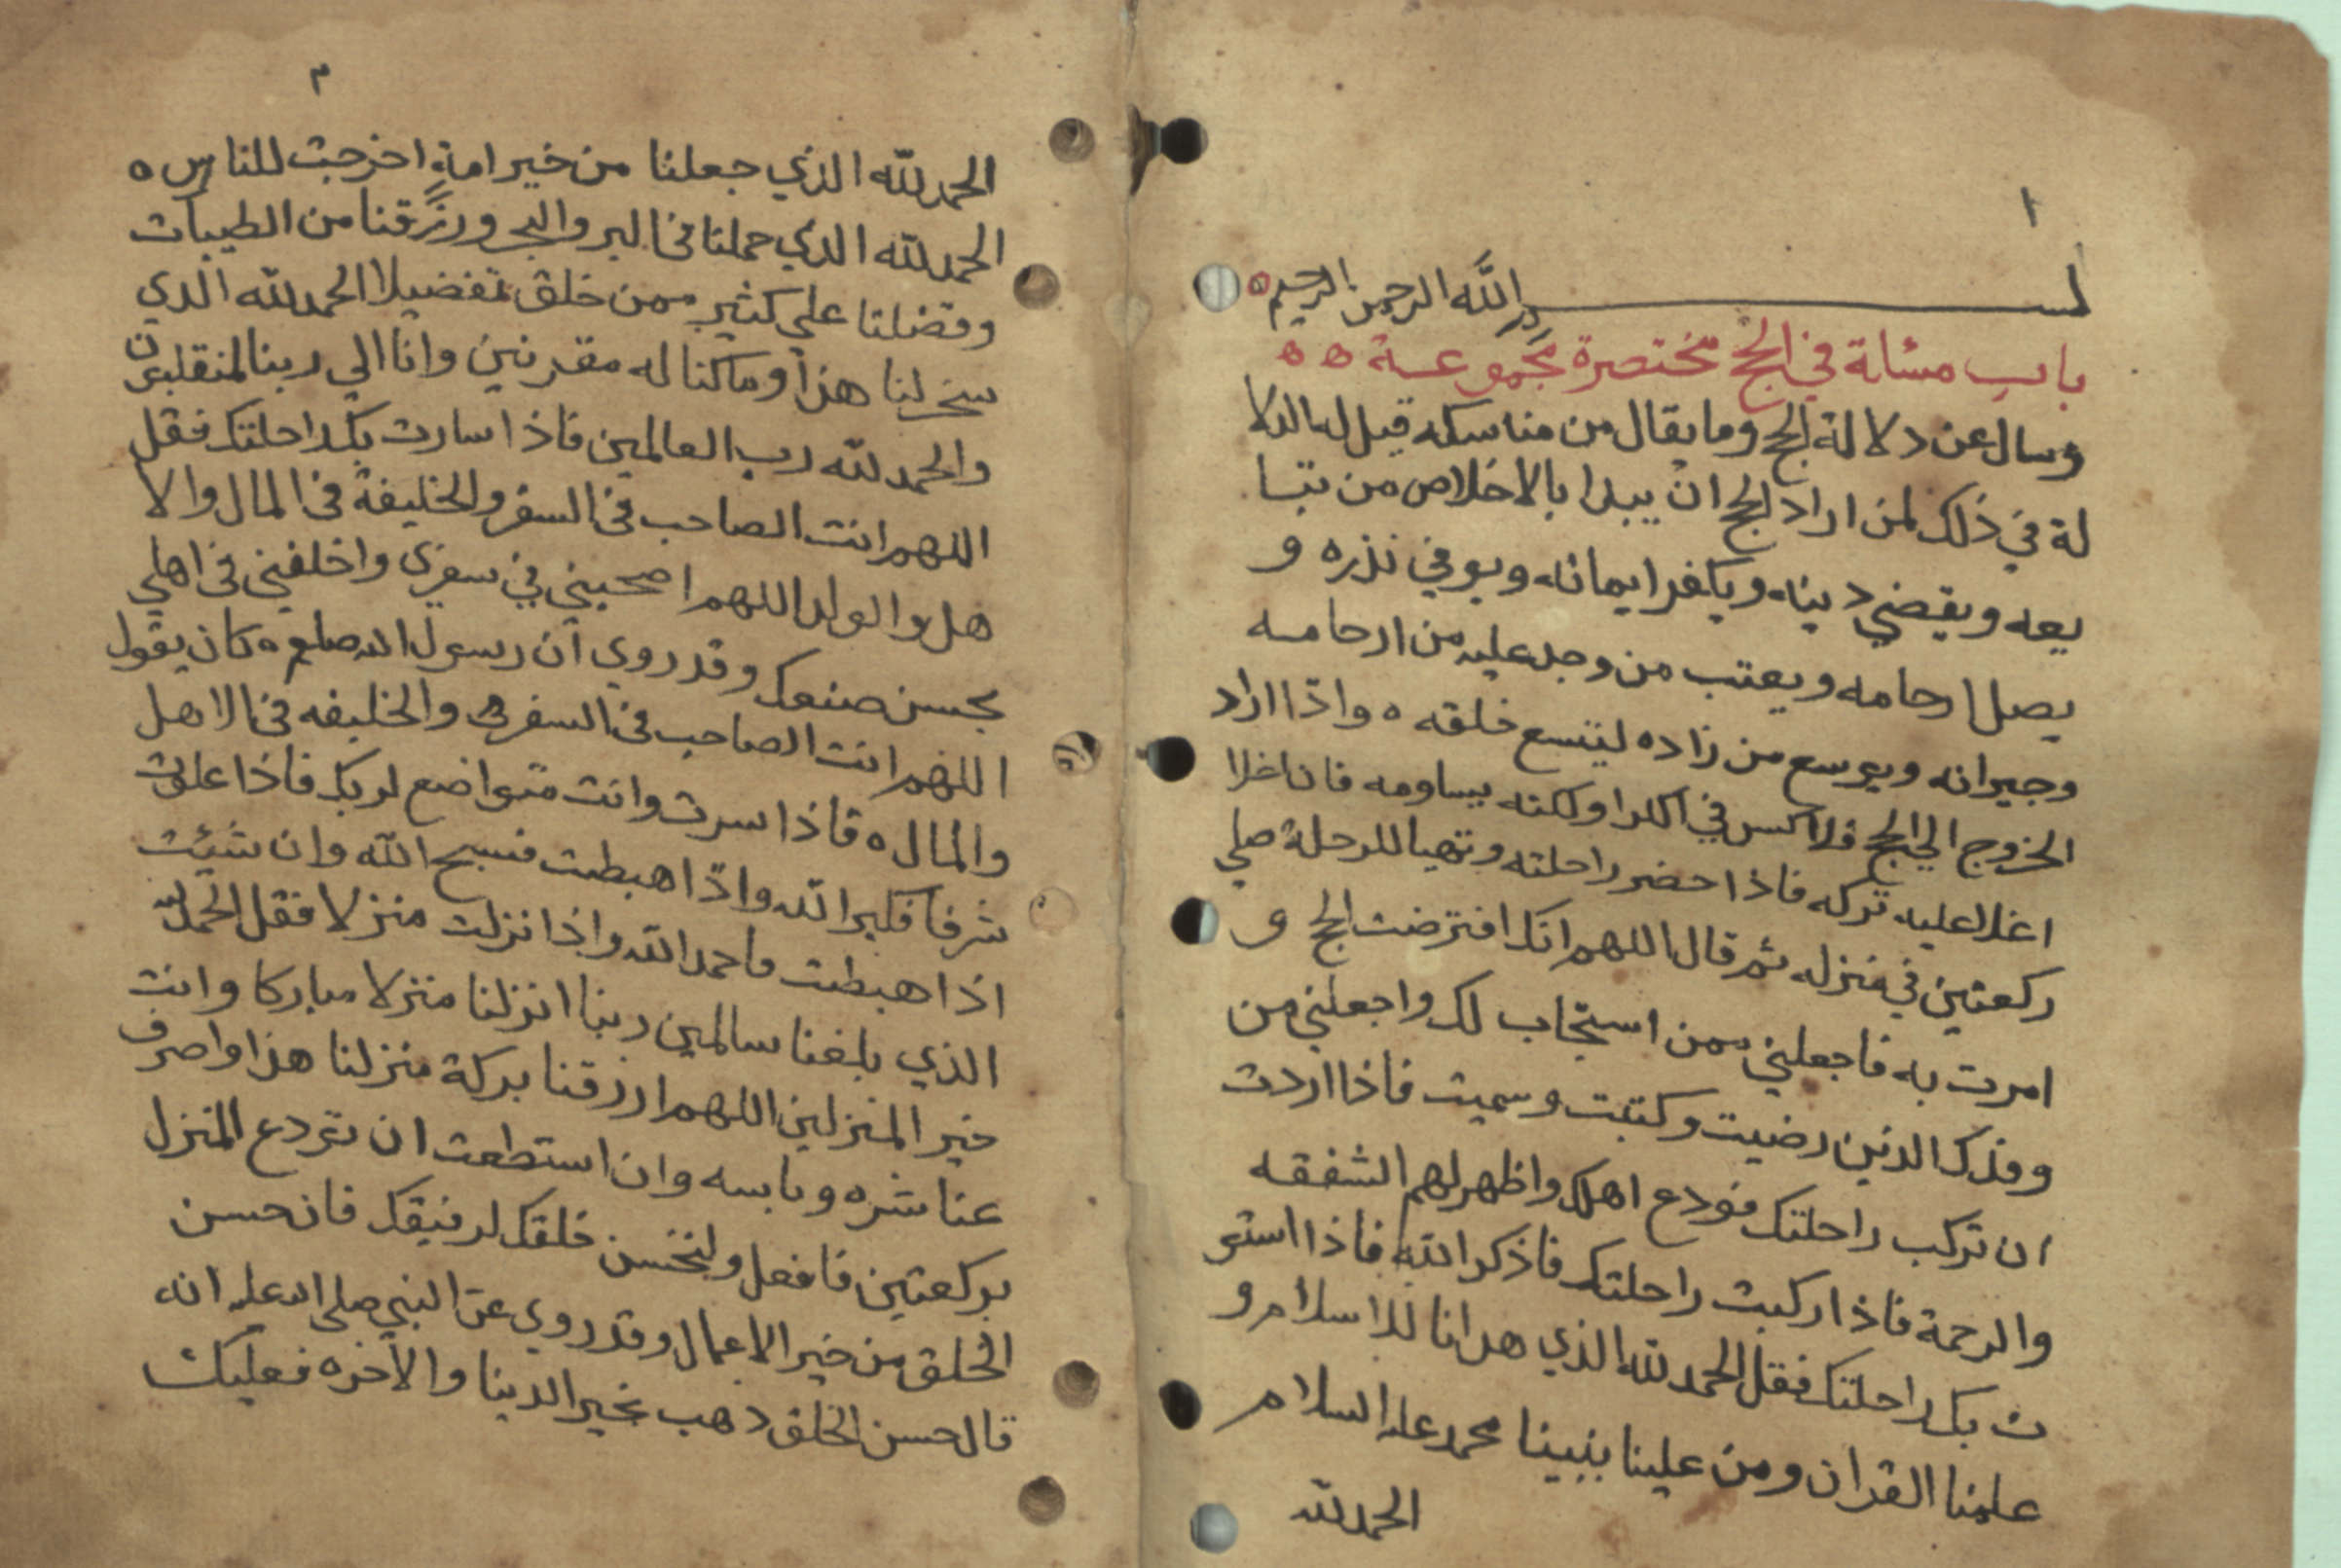 ١
بسم الله الرحمن الرحيم ه
باب مسئلة في الحج مختصرة مجموعة ه ه
وسال عن دلالة الحج وما يقال من مناسكه قيل له الدلا
لة في ذلك لمن اراد الحج ان يبدا بالاخلاص من تبا
يعه ويقضي دينه ويكفر ايمانه ويوفي نذره و
يصل ارحامه ويعتب من وجد عليه من ارحامه
وجيرانه ويوسع من زاده ليتسع خلقه ه واذا اراد
الخروج الى الحج فلا اكس في الكرا ولكنه يساومه فان اغلا
اغلا عليه تركه فاذا حضر راحلته وتهيا للرحلة صلى
ركعتين في منزله ثم قال اللهم انك افترضت الحج و
امرت به فاجعلني ممن استجاب لك واجعلني من
وفدك الذين رضيت وكتبت وسميت فاذا اردت
ان تركب راحلتك فودع اهلك واظهر لهم الشفقه
والرحمة فاذا ركبت راحلتك فاذكر الله فاذا استو
ت بك راحلتك فقل الحمد لله الذي هدانا للاسلام و
علمنا القران ومن علينا بنبينا محمد عليه السلام
الحمد لله
٣
الحمد لله الذي جعلنا من خير امة اخرجت للناس ه
الحمد لله الذي حملنا في البر والبحر ورزقنا من الطيبات
وفضلنا على كثير ممن خلق تفضيلا الحمد لله الذي
سخر لنا هذا وما كنا له مقرنين وانا الي ربنا لمنقلبون
والحمد لله رب العالمين فاذا سارت بك راحلتك فقل
اللهم انت الصاحب في السفر والخليفة في المال والا
هل والولد اللهم اصحبني في سفري واخلفني في اهلي
بحسن صنعك وقد روي ان رسول الله صلعم ه كان يقول
اللهم انت الصاحب في السفر ه والخليفه في الاهل
والمال ه فاذا سرت وانت متواضع لربك فاذا علوت
شرفا فكبر الله واذا هبطت فسبح الله وان شئت
اذا هبطت فاحمد الله واذا نزلت منزلا فقل الحمد لله
الذي بلغنا سالمين ربنا انزلنا منزلا مباركا وانت
خير المنزلين اللهم ارزقنا بركة منزلنا هذا واصرف
عنا شره وباسه وان استطعت ان تودع المنزل
بركعتين فافعل ولتحسن خلقك لرفيقك فان حسن
الخلق من خير الاعمال وقد روي عن النبي صلى الله عليه انه
قال حسن الخلق ذهب بخير الدنيا والاخره فعليك